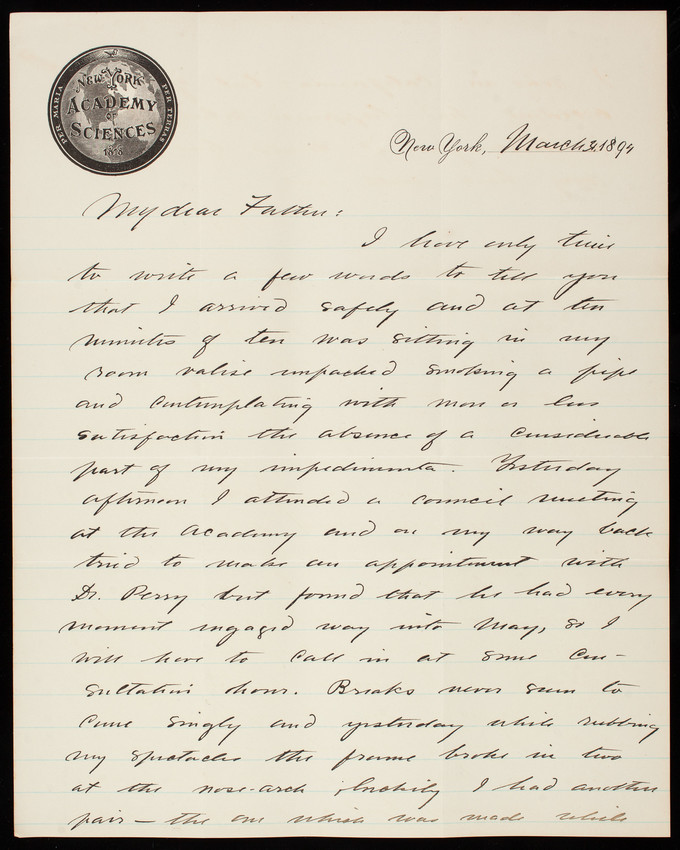 NEW YORK
ACADEMY
OF
SCIENCES
1818
PER MARIA
PER TERRAS
New York, March 31, 1894
My dear Father:
I have only time
to write a few words to tell you
that I arrived safely and at ten
minutes of ten was sitting in my
room valise unpacked smoking a pipe
and contemplating with more or less
satisfaction the absence of a considerable
part of my impedimenta. Yesterday
afternoon I attended a council meeting
at the Academy and on my way back
tried to make an appointment with
Dr. Perry but found that he had every
moment engaged way into May, so I
will have to call in at some con-
sultation hour. Breaks never seem to
come singly and yesterday while rubbing
my spectacles the frame broke in two
at the nose-arch; luckily I had another
pair — the one which was made while